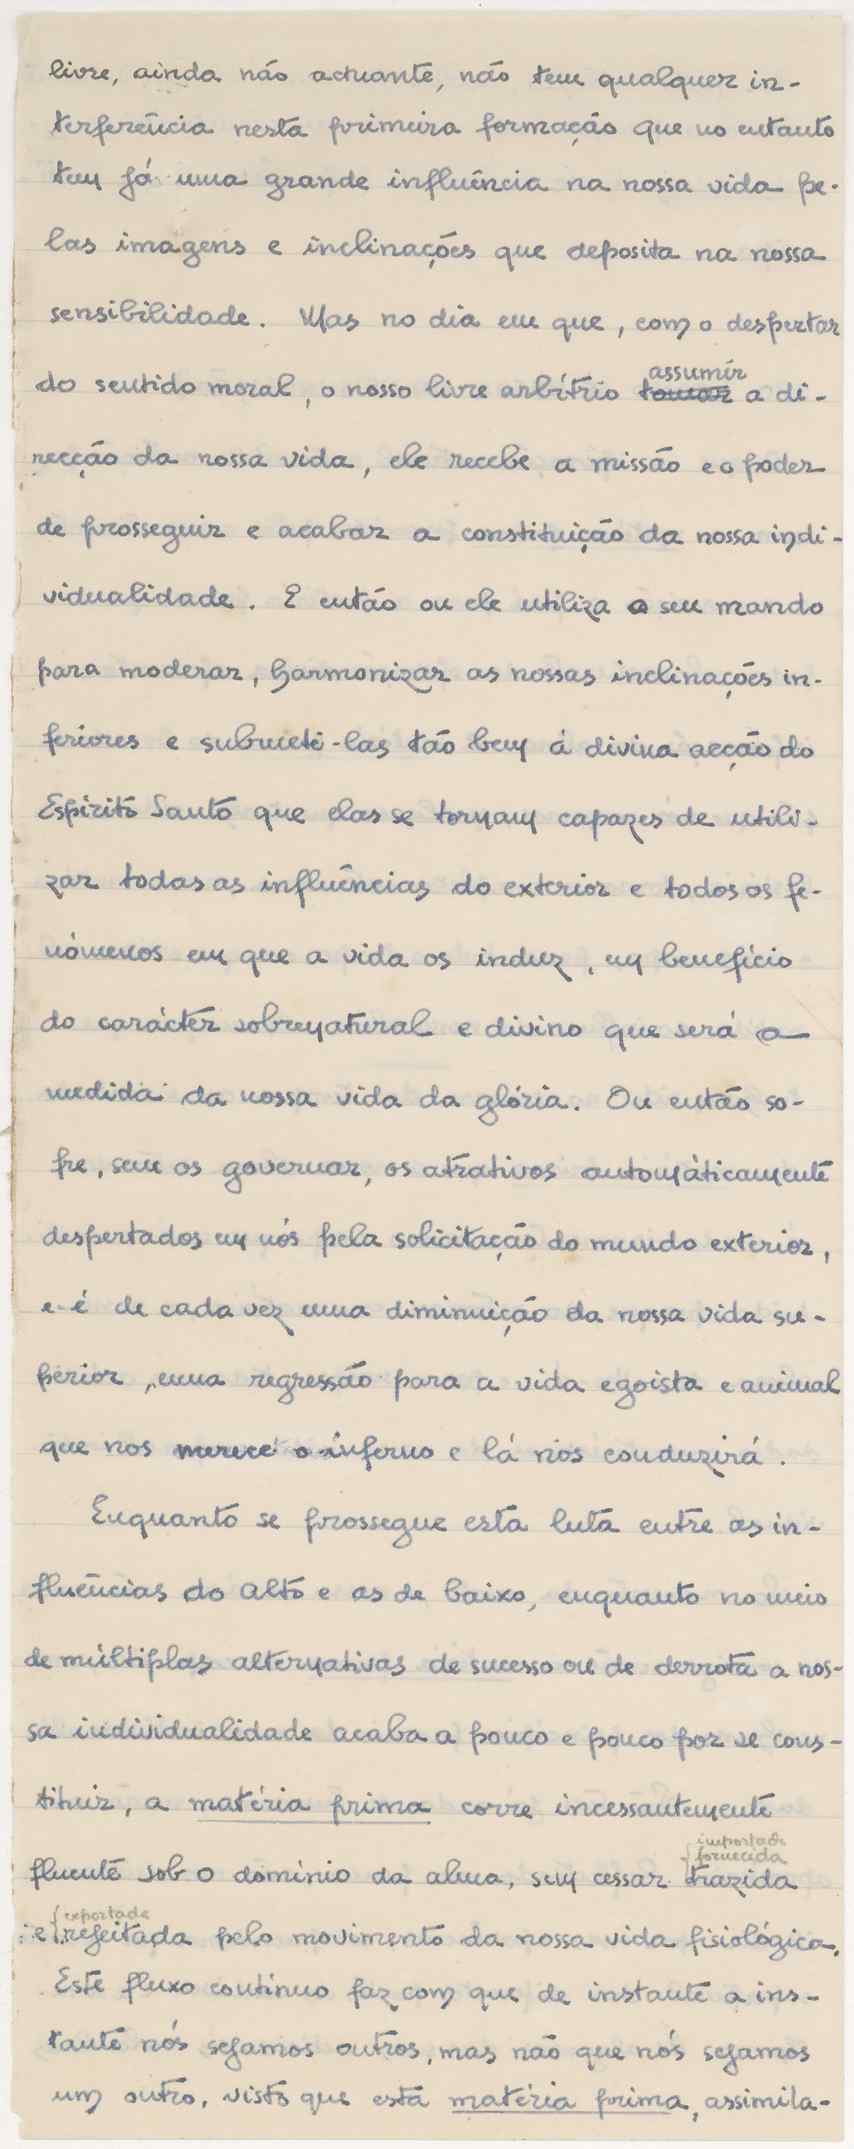 livre, ainda não actuante, não tem qualquer in-
terferência nesta primeira formação que no entanto
tem já uma grande influência na nossa vida pe-
las imagens e inclinações que deposita na nossa
sensibilidade. Mas no dia em que, com o despertar
assumir
do sentido moral, o nosso livre arbítrio tomar a di-
recção da nossa vida, ele recebe a missão e o poder
de prosseguir e acabar a constituição da nossa indi-
vidualidade. E então ou ele utiliza o seu mando
para moderar, harmonizar as nossas inclinações in-
feriores e submetê-las tão bem á divina acção do
Espírito Santo que elas se tornam capazes de utili-
zar todas as influências do exterior e todos os fe-
nómenos em que a vida os induz, em benefício
do carácter sobrenatural e divino que será a
medida da nossa vida da glória. Ou então so-
fre, sem os governar, os atrativos automàticamente
despertados em nós pela solicitação do mundo exterior,
e é de cada vez uma diminuição da nossa vida su-
perior, uma regressão para a vida egoista e animal
que nos merece o inferno e lá nos conduzirá.
Enquanto se prossegue esta luta entre as in-
fluências do Alto e as de baixo, enquanto no meio
de múltiplas alternativas de sucesso ou de derrota a nos-
sa individualidade acaba a pouco e pouco por se cons-
tituir, a matéria prima corre incessantemente
importada
fornecida
fluente sob o domínio da alma, sem cessar trazida
exportada
e rejeitada pelo movimento da nossa vida fisiológica.
Este fluxo contínuo faz com que de instante a ins-
tante nós sejamos outros, mas não que nós sejamos
um outro, visto que esta matéria prima, assimila-